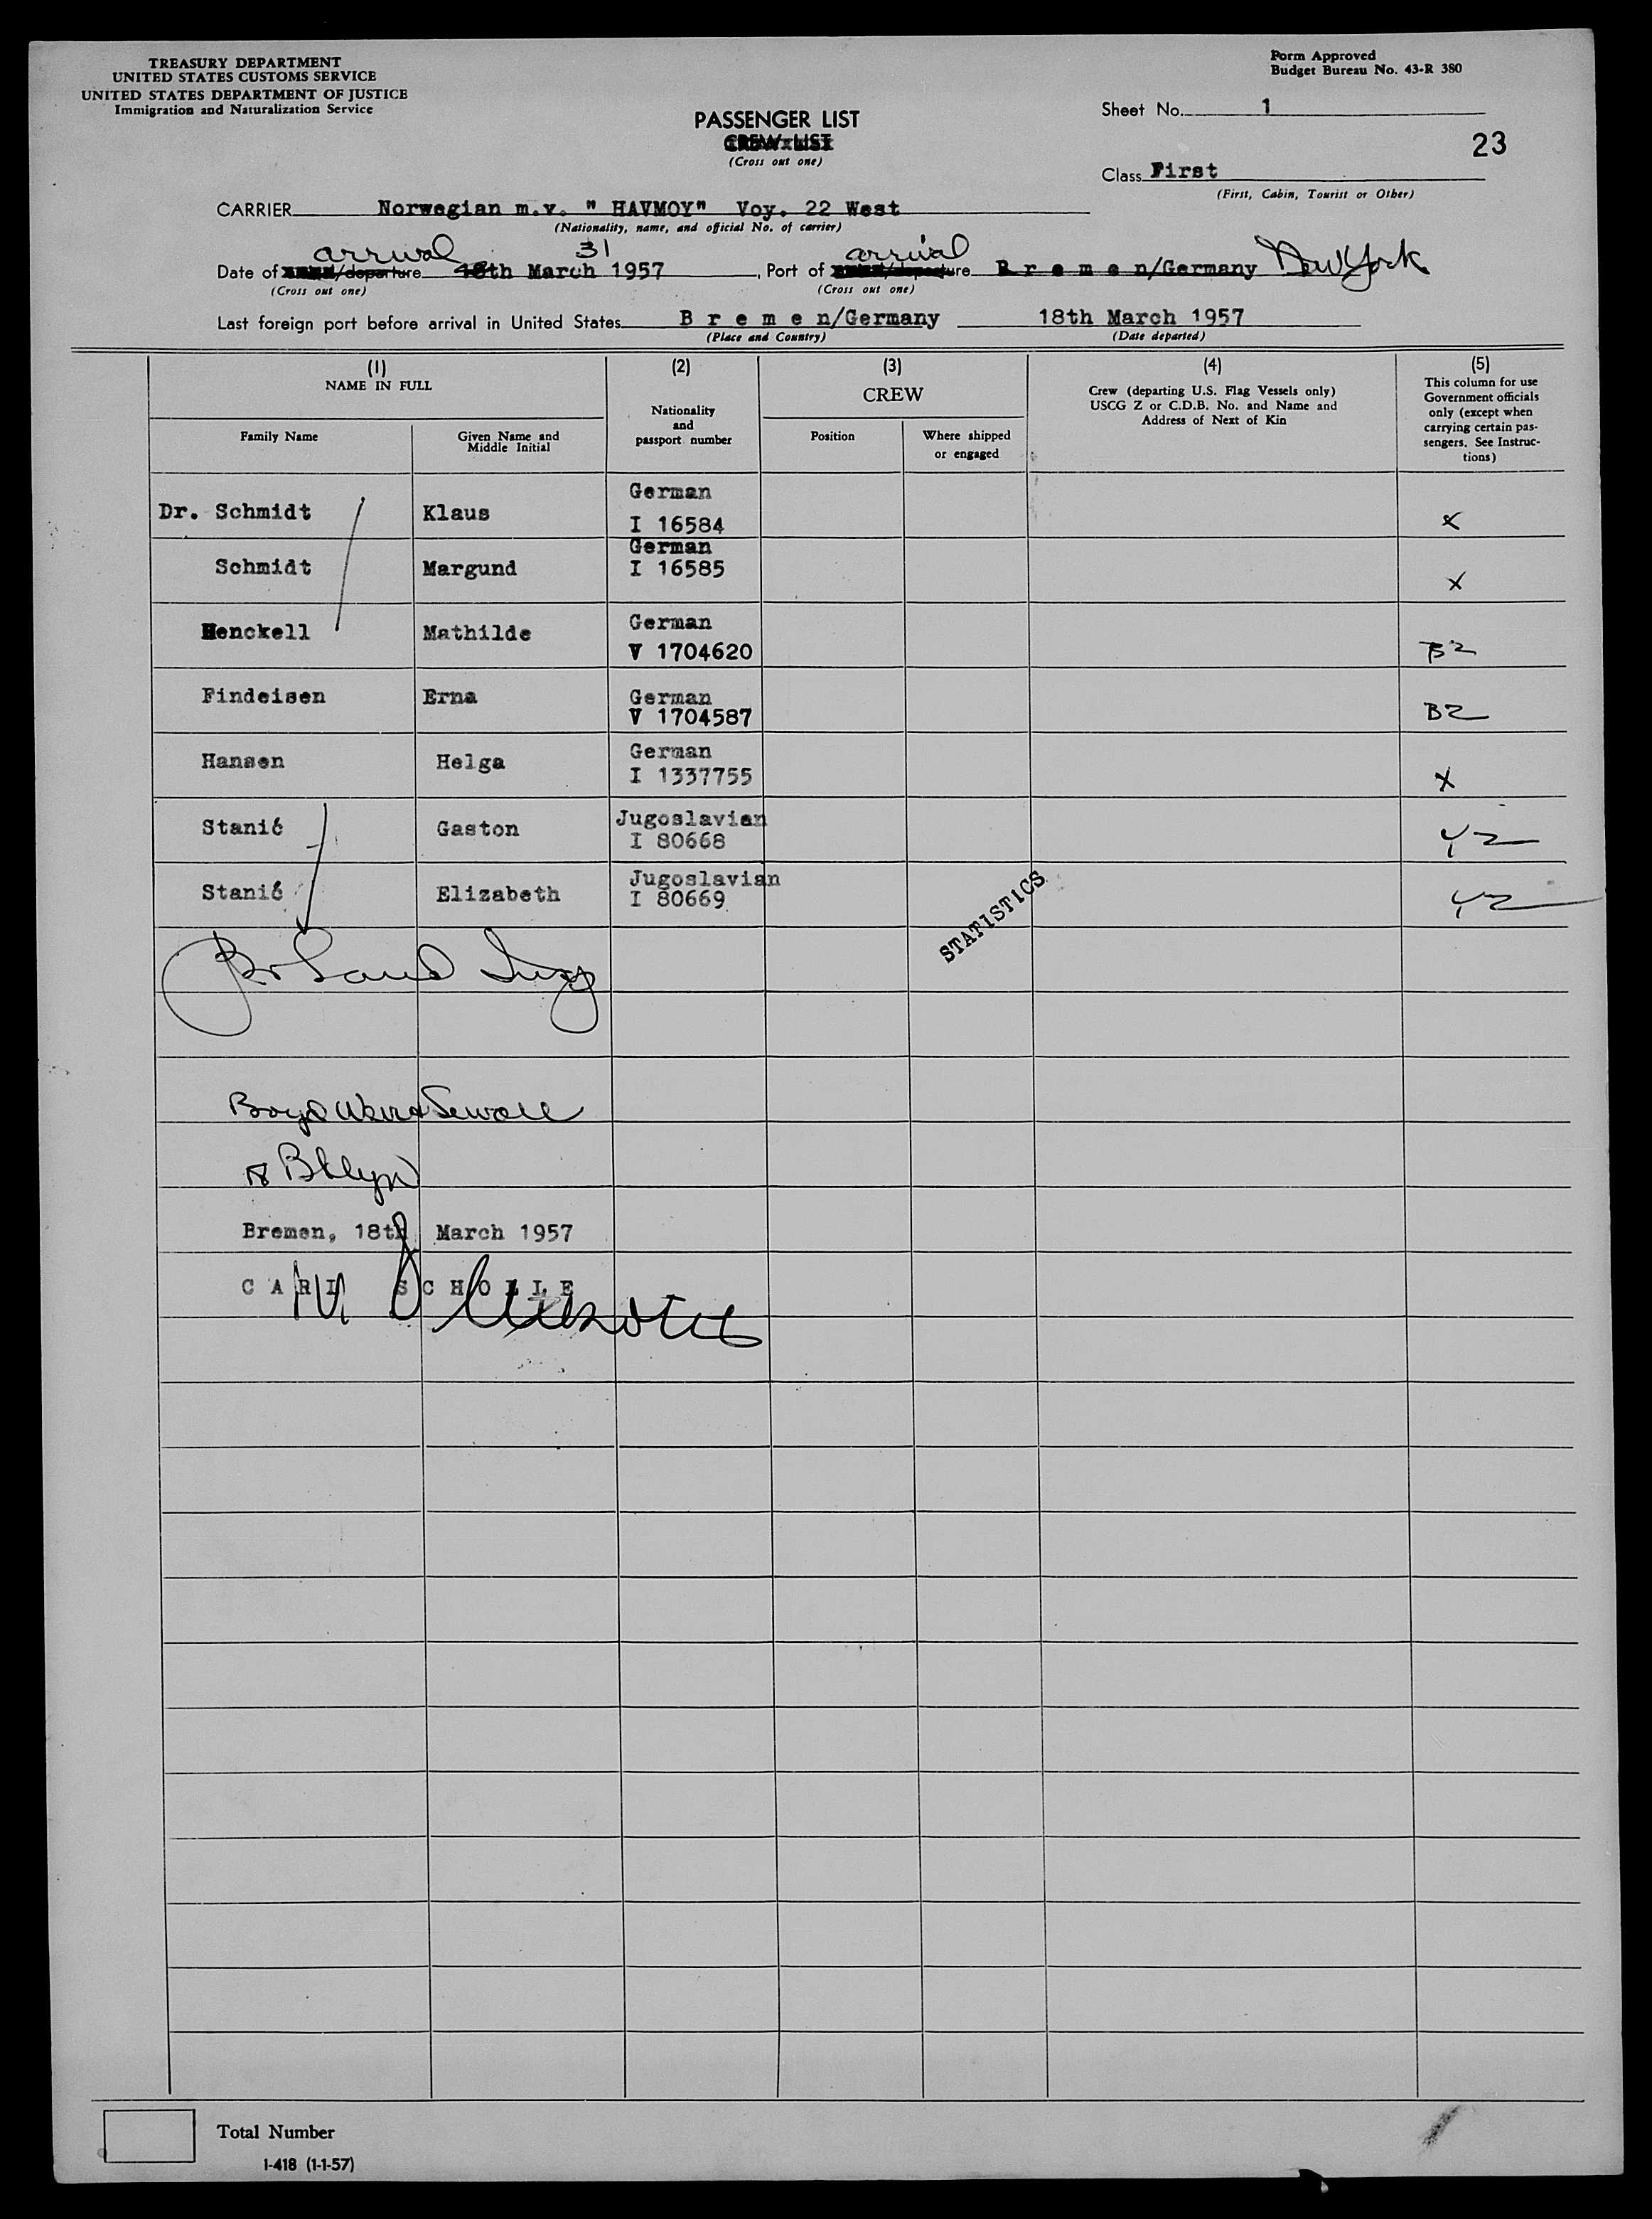 TREASURY DEPARTMENT
UNITED STATES CUSTOMS SERVICE
UNITED STATES DEPARTMENT OF JUSTICE
Immigration and Naturalization Service
Form Approved
Budget Bureau No. 43-R 380
PASSENGER LIST
CREW LIST
(Cross out one)
Sheet No. 1
23
Class First
(First, Cabin, Tourist or Other)
CARRIER Norwegian m.v. " HAVMOY" Voy. 22 West
(Nationality, name, and official No. of carrier)
arrival 31 arrival
Date of departure 18th March 1957, Port of departure B r e m e n/Germany New York
(Cross out one) (Cross out one)
Last foreign port before arrival in United States B r e m e n/Germany 18th March 1957
(Place and Country) (Date departed)
(1) (2) (3) (4) (5)
NAME IN FULL
Family Name
Given Name and
Middle Initial
Nationality
and
passport number
CREW
Position
Where shipped
or engaged
Crew (departing U.S. Flag Vessels only)
USCG Z or C.D.B. No. and Name and
Address of Next of Kin
This column for use
Government officials
only (except when
carrying certain pas-
sengers. See Instruc-
tions)
Dr. Schmidt Klaus German I 16584 x
Schmidt Margund German I 16585 x
Henckell Mathilde German V 1704620 B2
Findeisen Erna German V 1704587 B2
Hansen Helga German I 1337755 x
Stanić Gaston Jugoslavian I 80668
Stanić Elizabeth Jugoslavian I 80669
STATISTICS
Boyd Weir & Sewall
Bklyn
Bremen, 18th March 1957
C A R L S C H O L L E
Total Number
I-418 (1-1-57)